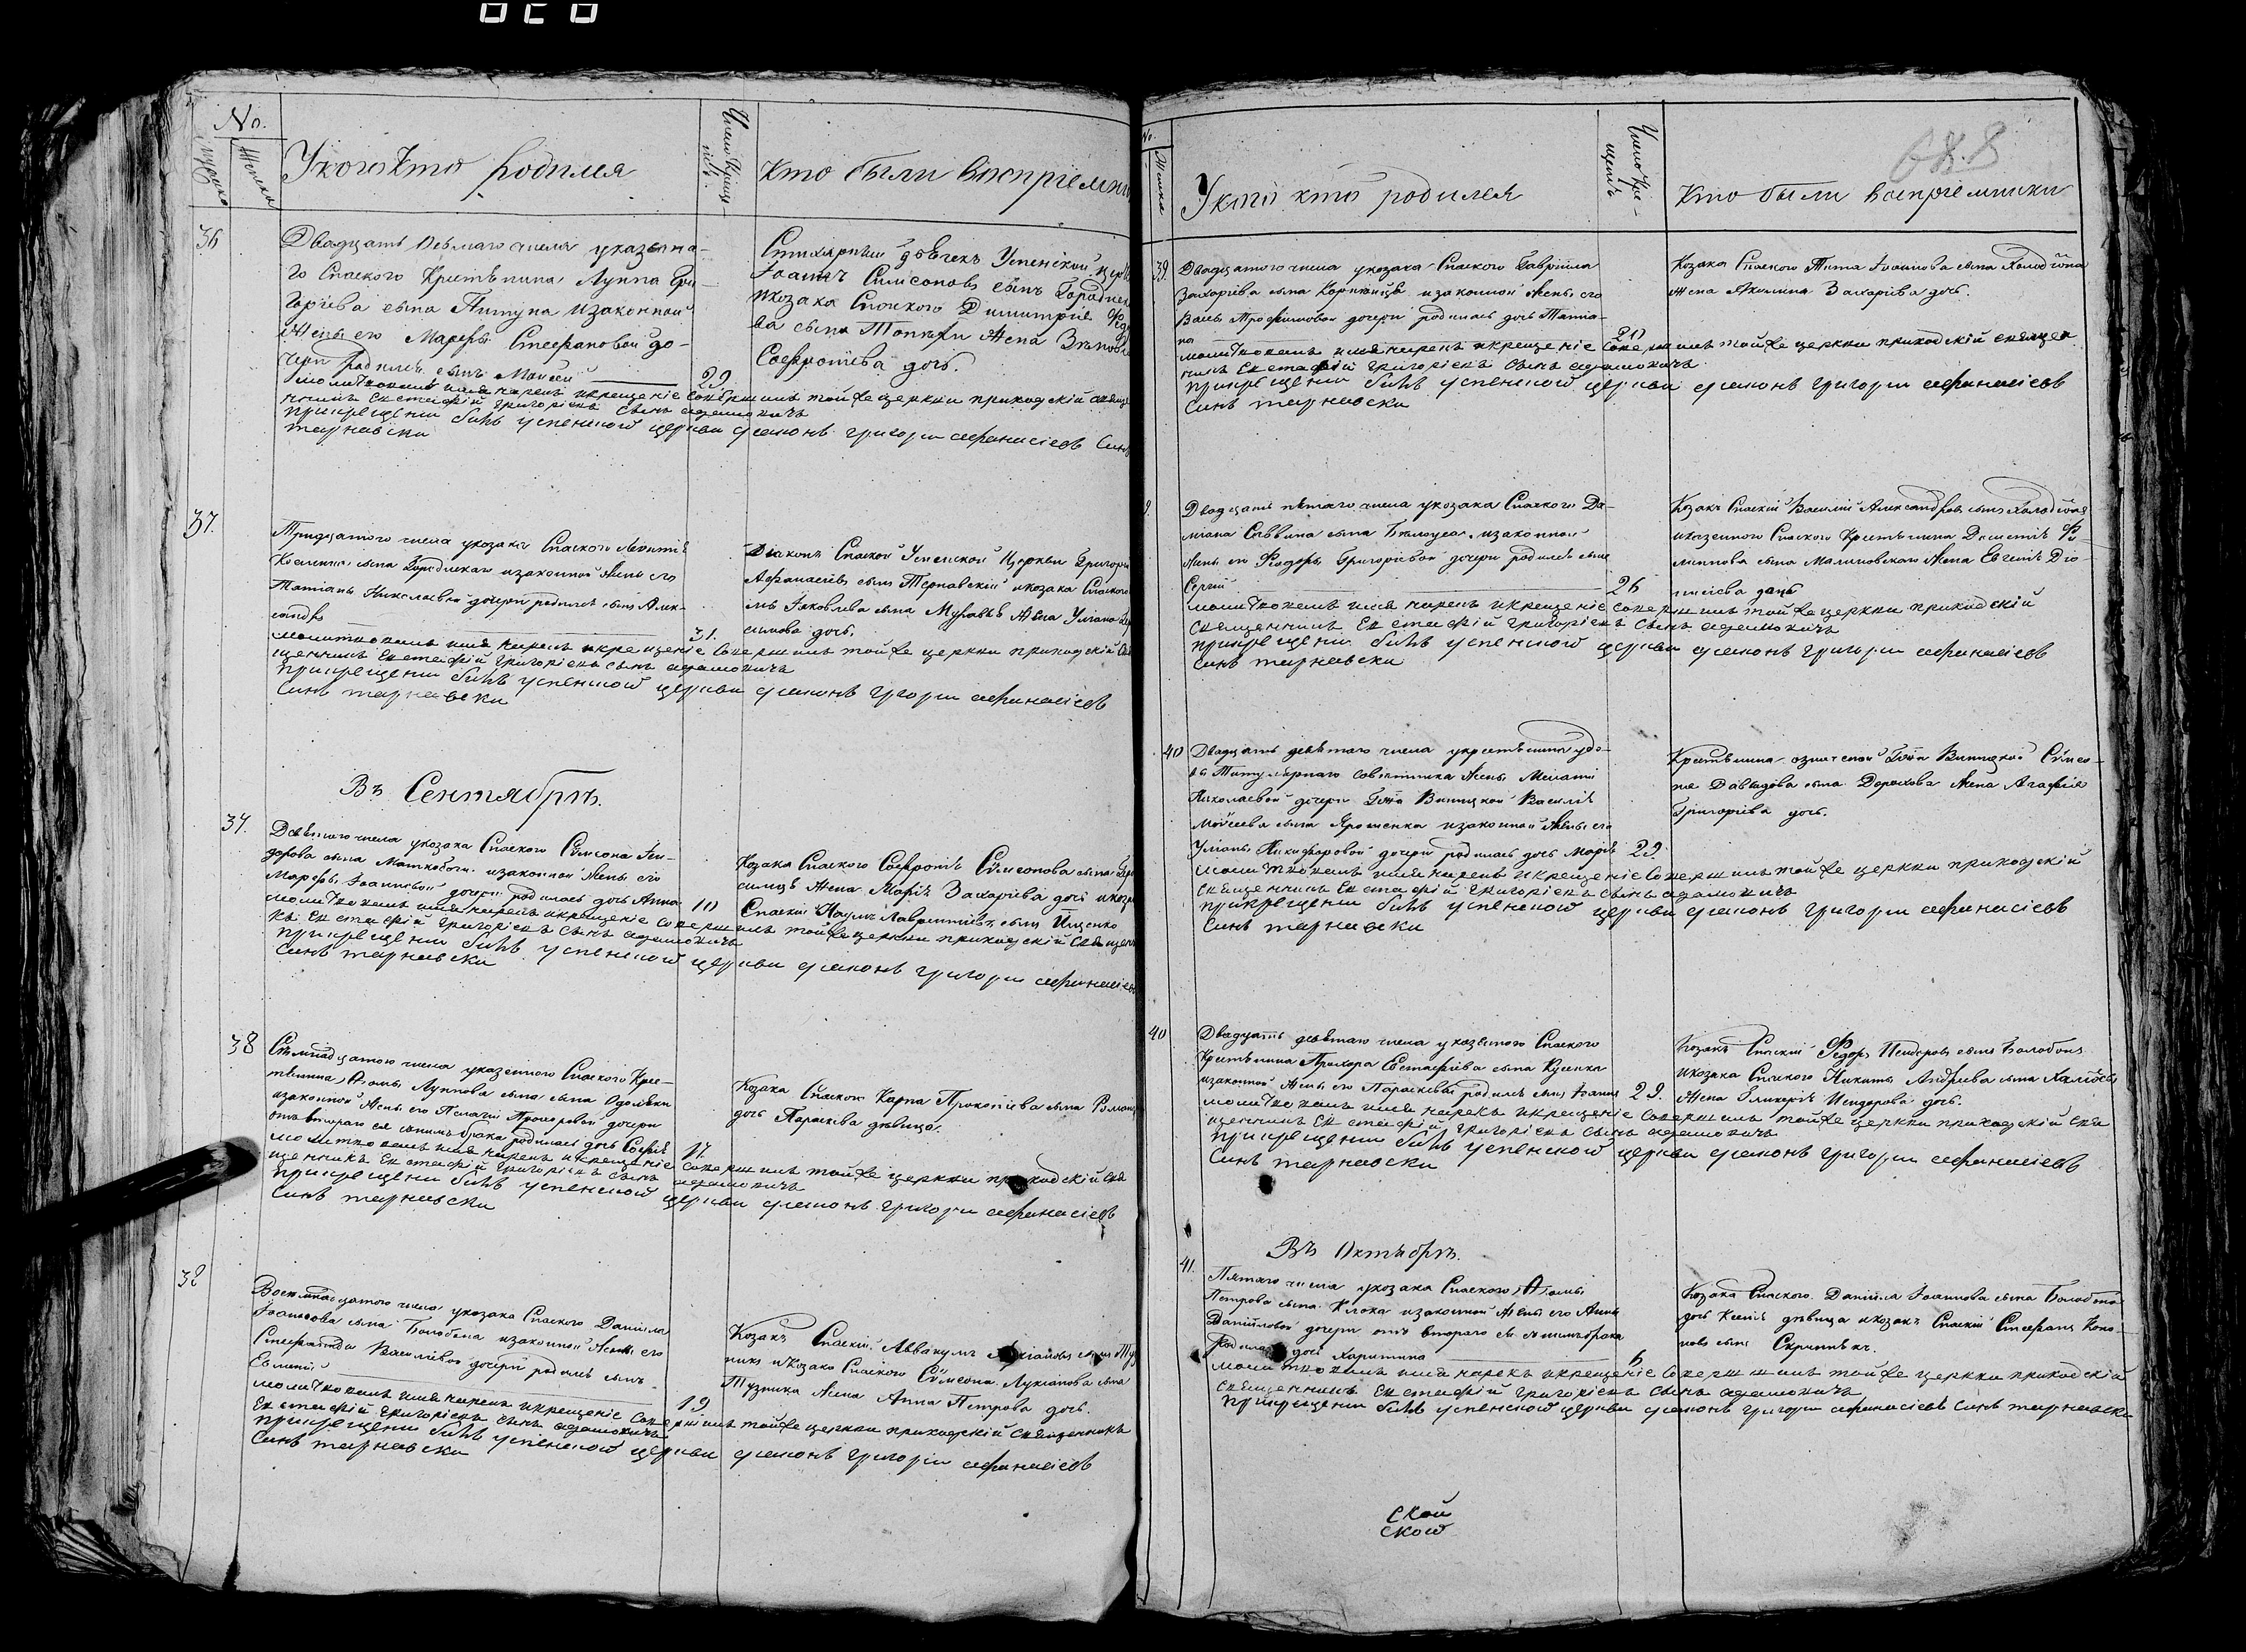 No.
Мужеска
Женска
У кого кто родился
Число Креще-
нія.
Кто были воспріемни
36
Двадцать осьмаго числа указенна-
го Спаского Крестьянина Луппа Гри-
горіева сына Питуна изаконной
жены его Марфы Стефановой до-
чери родился сынъ Моисей
29
молитвовалъ имя нарекъ икрещеніе совершилъ тойже церкви приходскій свяще
нникъ Евстафій Григоріевъ сынъ адамовичъ
при крещении билъ успенской церкви дияконъ григори афанасіевъ Синъ
тарнавски
Стихарный дьячекъ Успенской церк
Іоаннъ Симеоновъ сынъ Бораднен
икозака Спаского Димитрія Фед
ва сына Топчѣи жена Зѣнові
Софроніева дочь.
37.
Тридцатого числа укозака Спаского Леонтія
сына изаконной жены его
Татіаны Николаевой дочери родился сынъ Алек-
сандръ
31.
молитвовалъ имя нарекъ икрещеніе совершилъ тойже церкви приходскій свя
щенникъ Евстафій Григоріевъ сынъ адамовичъ
при крещении билъ успенской церкви дияконъ григори афанасіевъ
Синъ тарнавски
Діаконъ Спаской Успенской Церкви Григори
Афанасіевъ сынъ Тарнавскій икозака Спаского
Іаковлева сына жена Уліана
симова дочь.
Въ Сентябрѣ.
37.
Девятого числа укозака Спаского Сѵмеона Іси-
дорова сына изаконной жены его
Марфы Іоанновой дочери родилась дочь Анна
10
молитвовалъ имя нарекъ икрещеніе совершилъ тойже церкви приходскій священни
къ Евстафій Григоріевъ сынъ адамовичъ
при крещении билъ успенской церкви дияконъ григори афанасіевъ
Синъ тарнавски
Козака Спаского Софронія Сѵмеонова сына
жена Марія Захаріева дочь икозакъ
Спаскій Наумъ Лаврентіевъ сынъ Ищенко
38
Семнадцатого числа указенного Спаского Крес-
тьянина Ѳомы Луппова сына Одолѣки
изаконной жены его Пелагіи Прохоровой дочери
отъ втораго ея снимъ брака родилась дочь Софія
17.
молитвовалъ имя нарекъ икрещеніе совершилъ тойже церкви приходскій свя
щенникъ Евстафій Григоріевъ сынъ адамовичъ
при крещении билъ успенской церкви дияконъ григори афанасіевъ
Синъ тарнавски
Козака Спаского Карпа Прокопіева сына
дочь Параскева дѣвица.
38
Восемнадцатого числа укозака Спаского Даніила
Іоаннова сына Болобана изаконной жены его
Стефаниды Василіевой дочери родился сынъ
Евменій
19
молитвовалъ имя нарекъ икрещеніе совершилъ тойже церкви приходскій священникъ
Евстафій Григоріевъ сынъ адамовичъ
при крещении билъ успенской церкви дияконъ григори афанасіевъ
Синъ тарнавски
Козакъ Спаскій Аввакумъ Лукіановъ сынъ Туз
никъ икозака Спаского Сѵмеона Лукіанова сына
Тузника жена Анна Петрова дочь.
No.
Женска
У кого кто родился
Число Кре-
щенія
Кто были воспріемники
39.
Двадцатого числа укозака Спаского Гавріила
Захаріева сына изаконной жены его
Вассы Трофимовой дочери родилась дочь Татіа-
на
20
молитвовалъ имя нарекъ икрещеніе совершилъ тойже церкви приходскій священ
никъ Евстафій Григоріевъ сынъ адамовичъ
при крещении билъ успенской церкви дияконъ григори афанасіевъ
Синъ тарнавски
Козака Спаского Тита Іоаннова сына Холодіона
жена Акилина Захаріева дочь.
9.
Двадцать пятаго числа укозака Спаского Да-
міана Саввина сына Бѣлоуса изаконной
жены его Ѳеодоры Григоріевой дочери родился сынъ
Сергій
26
молитвовалъ имя нарекъ икрещеніе совершилъ тойже церкви приходскій
священникъ Евстафій Григоріевъ сынъ адамовичъ
при крещении билъ успенской церкви дияконъ григори афанасіевъ
Синъ тарнавски
Козакъ Спаскій Василій Александровъ сынъ Холодіона
иказенного Спаского Крестьянина Дометія Фи-
липпова сына Малиновского жена Евгенія Діо-
нисіева дочь
40
Двадцать девятаго числа укрестьянина удо-
въ Титулярнаго Совѣтника жены Меланіи
Николаевой дочери Гжи Виницкой Василія
Моисеева сына Ярошенка изаконной жены его
Уліаны Никифоровой дочери родилась дочь Марія
29.
молитвовалъ имя нарекъ икрещеніе совершилъ тойже церкви приходскій
священникъ Евстафій Григоріевъ сынъ адамовичъ
при крещении билъ успенской церкви дияконъ григори афанасіевъ
Синъ тарнавски
Крестьянина означеной Гжи Виницкой Сѵмео-
на Давыдова сына Дорохова жена Агафія
Григоріева дочь.
40
Двадцать девятаго числа указенного Спаского
Крестьянина Прохора Евстафіева сына Куценка
изаконной жены его Параскевы родился сынъ Іоаннъ
29.
молитвовалъ имя нарекъ икрещеніе совершилъ тойже церкви приходскій свя
щенникъ Евстафій Григоріевъ сынъ адамовичъ
при крещении билъ успенской церкви дияконъ григори афанасіевъ
Синъ тарнавски
Козакъ Спаскій Федоръ Исидоровъ сынъ Болобонъ
икозака Спаского Никиты Андреева сына
жена Гликерія Исидорова дочь.
Въ Октябрѣ.
41.
Пятаго числа укозака Спаского Ѳомы
Петрова сына Клока изаконной жены его Анны
Даніиловой дочери отъ втораго ея снимъ брака
родилась дочь Харитина
6
молитвовалъ имя нарекъ икрещеніе совершилъ тойже церкви приходскій
священникъ Евстафій Григоріевъ сынъ адамовичъ
при крещении билъ успенской церкви дияконъ григори афанасіевъ Синъ тарнавски
Козака Спаского Даніила Іоаннова сына Болобона
дочь Ксенія дѣвица икозакъ Спаскій Стефанъ Коно-
новъ сынъ
ской
ской